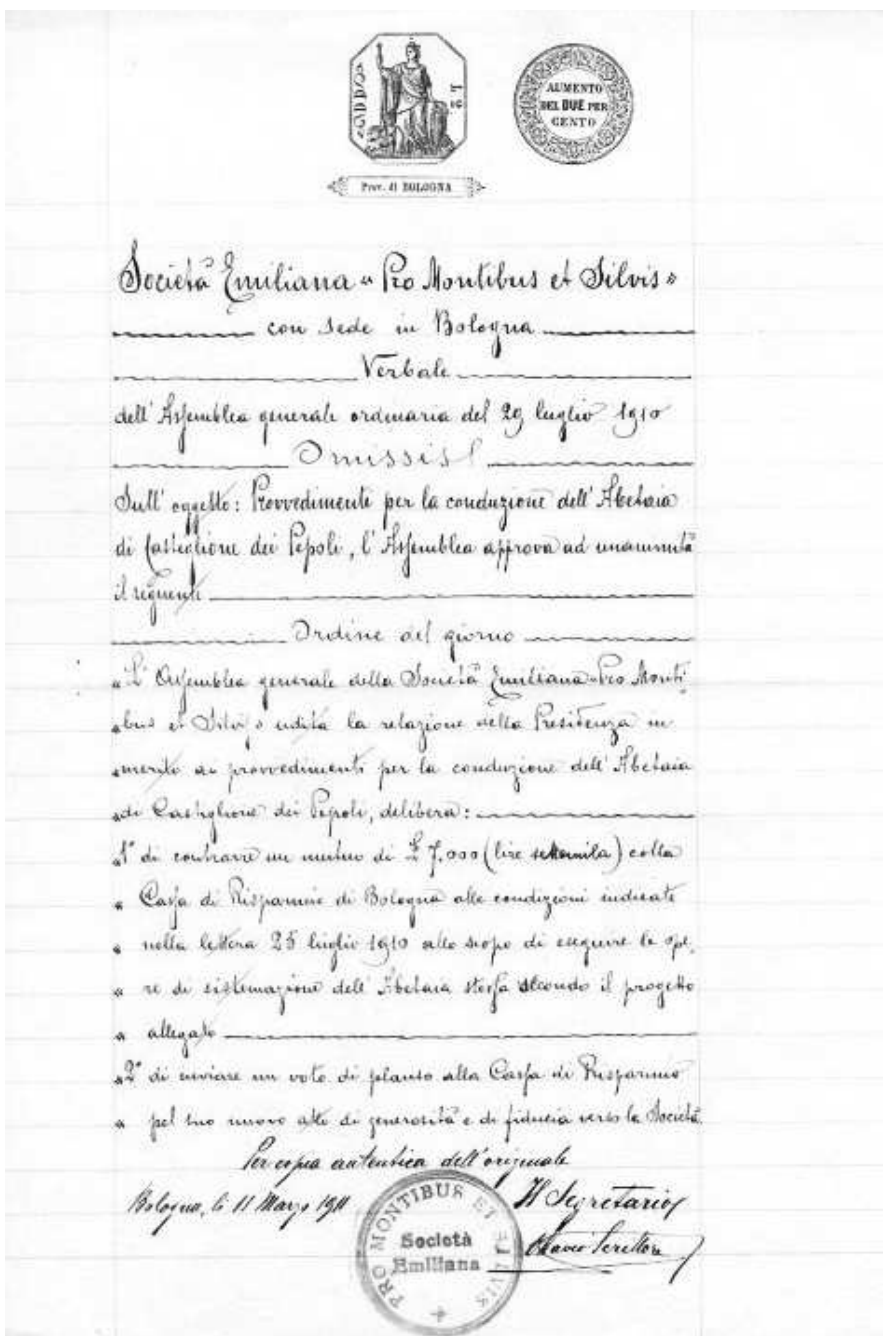 AUMENTO
DEL DUE PER
CENTO
Prov. di BOLOGNA
Società Emiliana "Pro Montibus et Silvis"
con sede in Bologna
Verbale
dell'Assemblea generale ordinaria del 29 luglio 1910
Omissis
Sull'oggetto: Provvedimenti per la conduzione dell'Abetaia
di Castiglione dei Pepoli, l'Assemblea approva ad unanimità
il seguente
Ordine del giorno
"L'Assemblea generale della Società Emiliana "Pro Monti
"bus et Silvis" udita la relazione della Presidenza in
"merito ai provvedimenti per la conduzione dell'Abetaia
"di Castiglione dei Pepoli, delibera:
"1° di contrarre un mutuo di £ 7.000 (lire settemila) colla
" Cassa di Risparmio di Bologna alle condizioni indicate
" nella lettera 25 luglio 1910 allo scopo di eseguire le ope.
" re di sistemazione dell'Abetaia stessa secondo il progetto
" allegato
"2° di inviare un voto di plauso alla Cassa di Risparmio
" pel suo nuovo atto di generosità e di fiducia verso la Società.
Per copia autentica dell'originale
Bologna, li 11 Marzo 1911
Il Segretario
PRO MONTIBUS ET SILVIS
Società
Emiliana